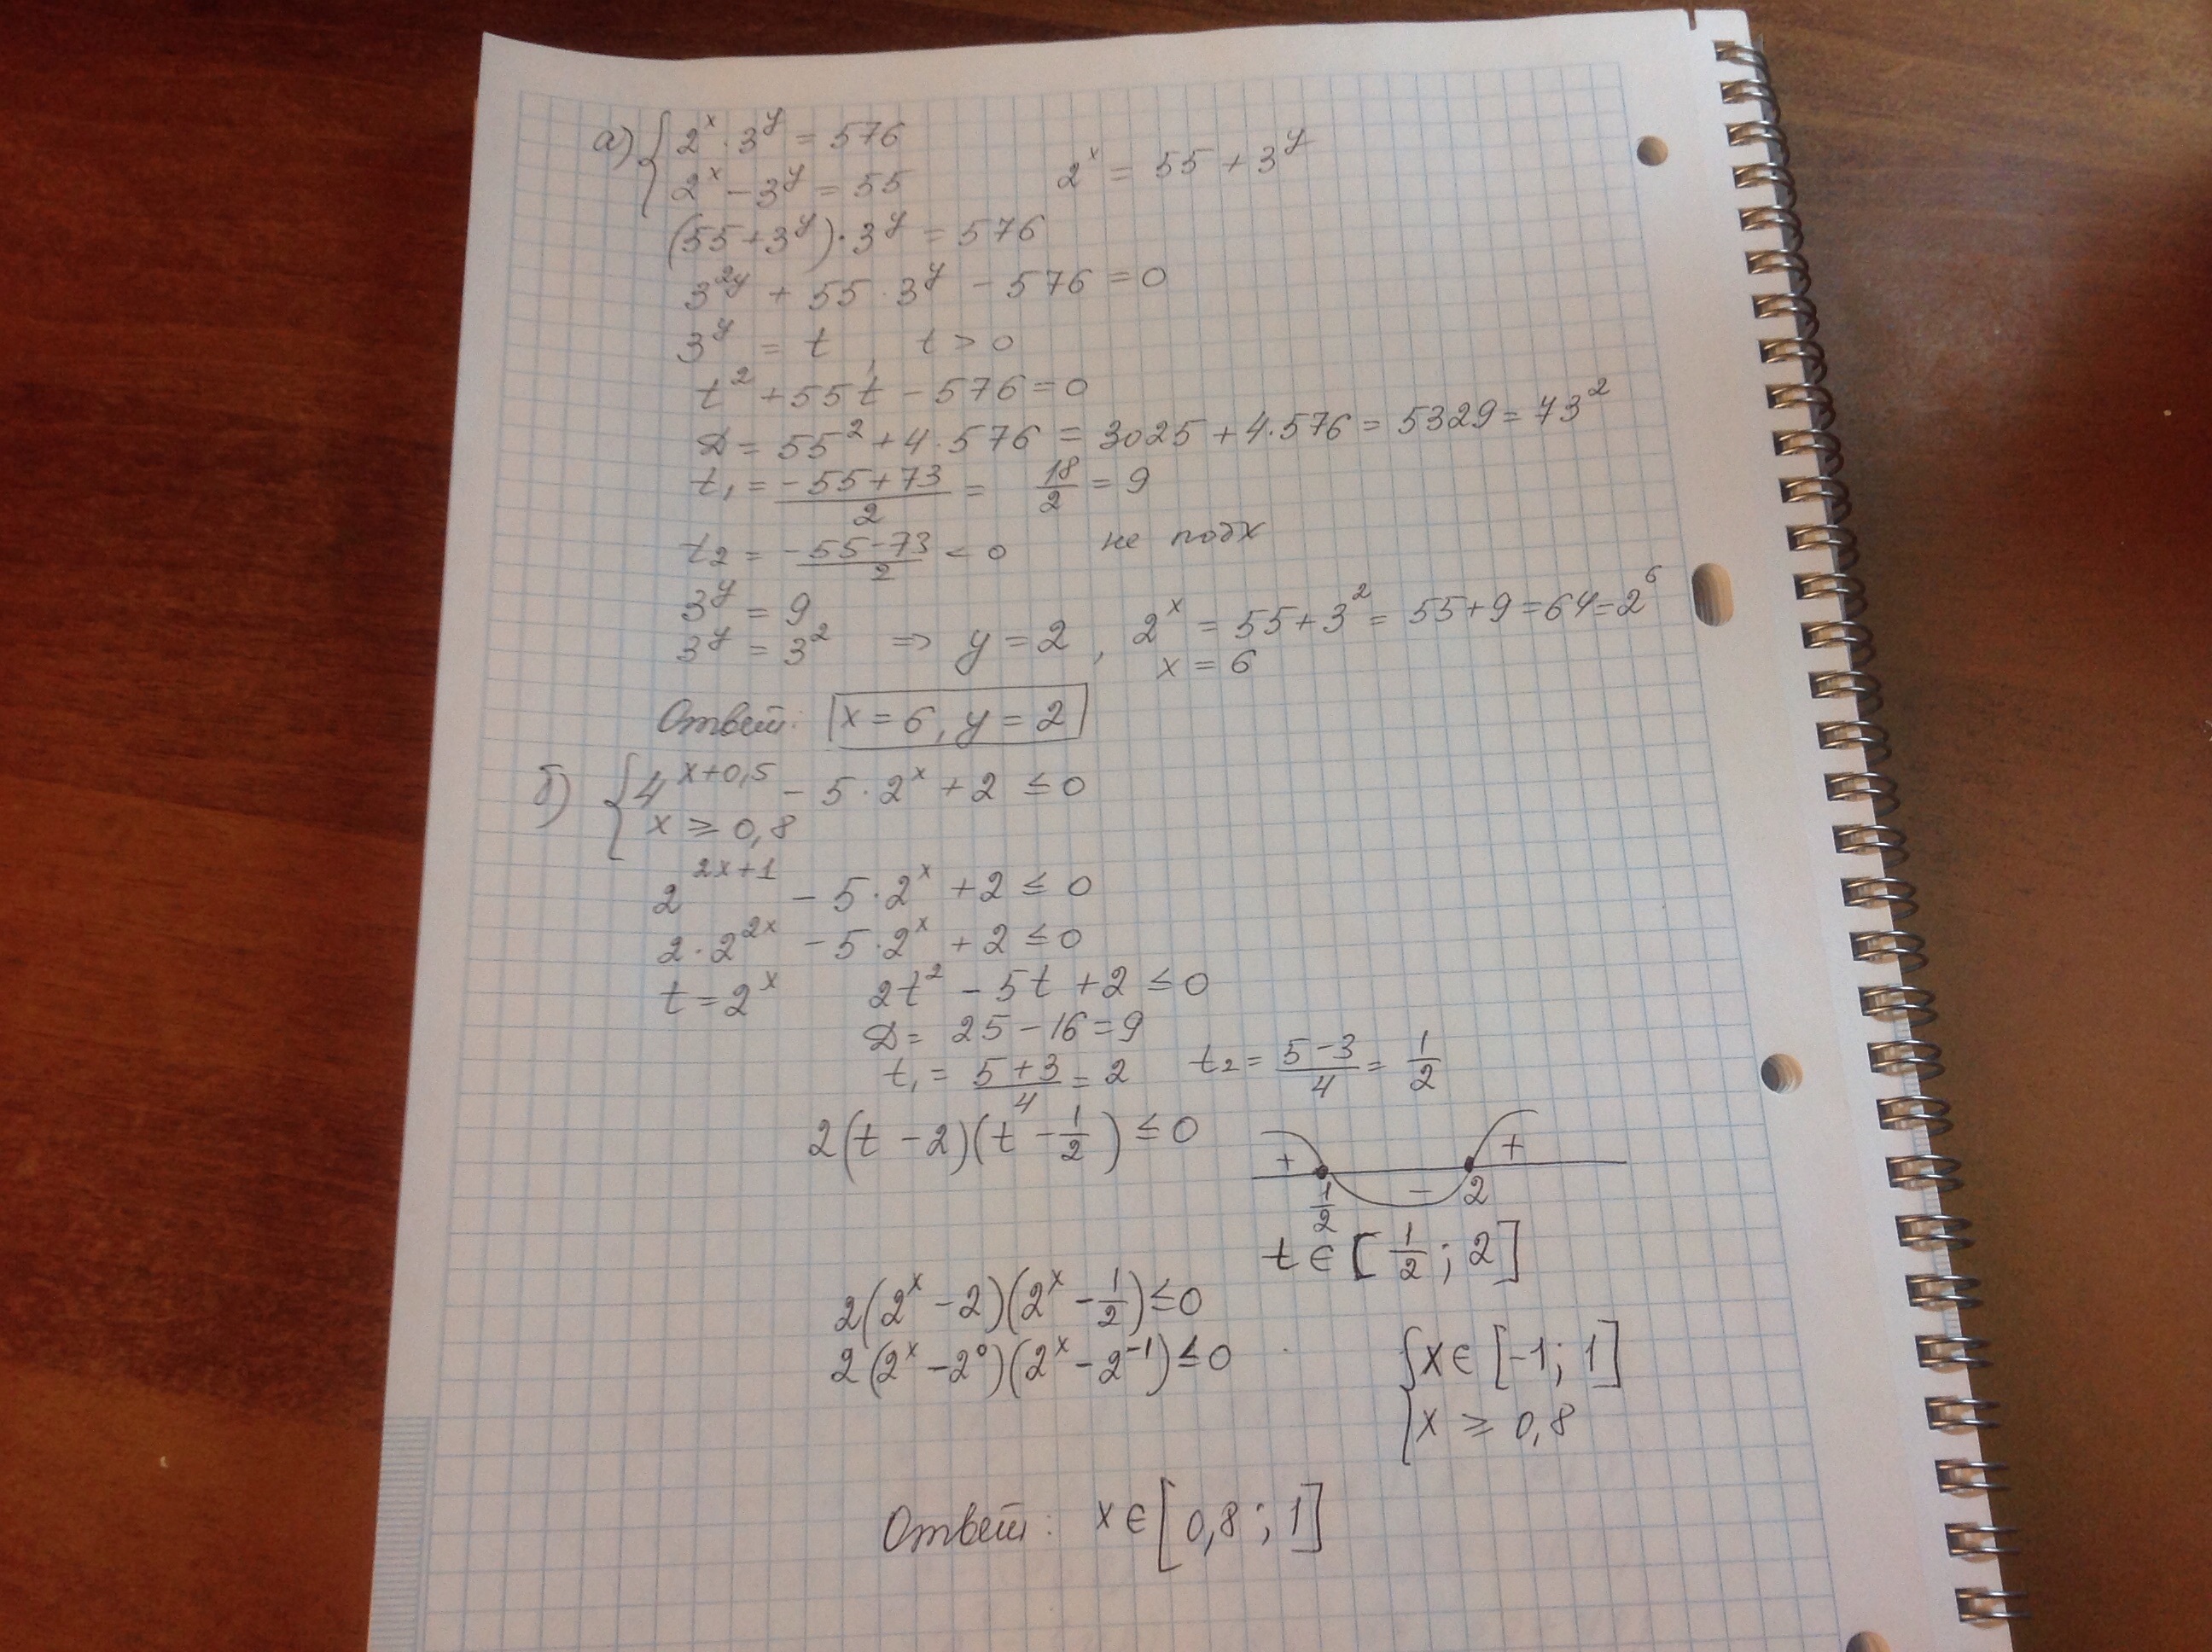 а) { 2^x · 3^y = 576
2^x - 3^y = 55     2^x = 55 + 3^y
(55 + 3^y) · 3^y = 576
3^2y + 55 · 3^y - 576 = 0
3^y = t, t > 0
t^2 + 55t - 576 = 0
D = 55^2 + 4·576 = 3025 + 4·576 = 5329 = 73^2
t₁ = (-55+73)/2 = 18/2 = 9
t₂ = (-55-73)/2 < 0   не подх
3^y = 9
3^y = 3^2 => y = 2, 2^x = 55 + 3^2 = 55 + 9 = 64 = 2^6
x = 6
Ответ: x = 6, y = 2
б) { 4^(x+0,5) - 5 · 2^x + 2 ≤ 0
x ≥ 0,8
2^(2x+1) - 5 · 2^x + 2 ≤ 0
2 · 2^2x - 5 · 2^x + 2 ≤ 0
t = 2^x   2t^2 - 5t + 2 ≤ 0
D = 25 - 16 = 9
t₁ = (5+3)/4 = 2   t₂ = (5-3)/4 = 1/2
2(t - 2)(t - 1/2) ≤ 0
+ - +
1/2 2
t ∈ [1/2; 2]
2(2^x - 2)(2^x - 1/2) ≤ 0
2(2^x - 2^0)(2^x - 2^-1) ≤ 0
{ x ∈ [-1; 1]
x ≥ 0,8
Ответ: x ∈ [0,8; 1]